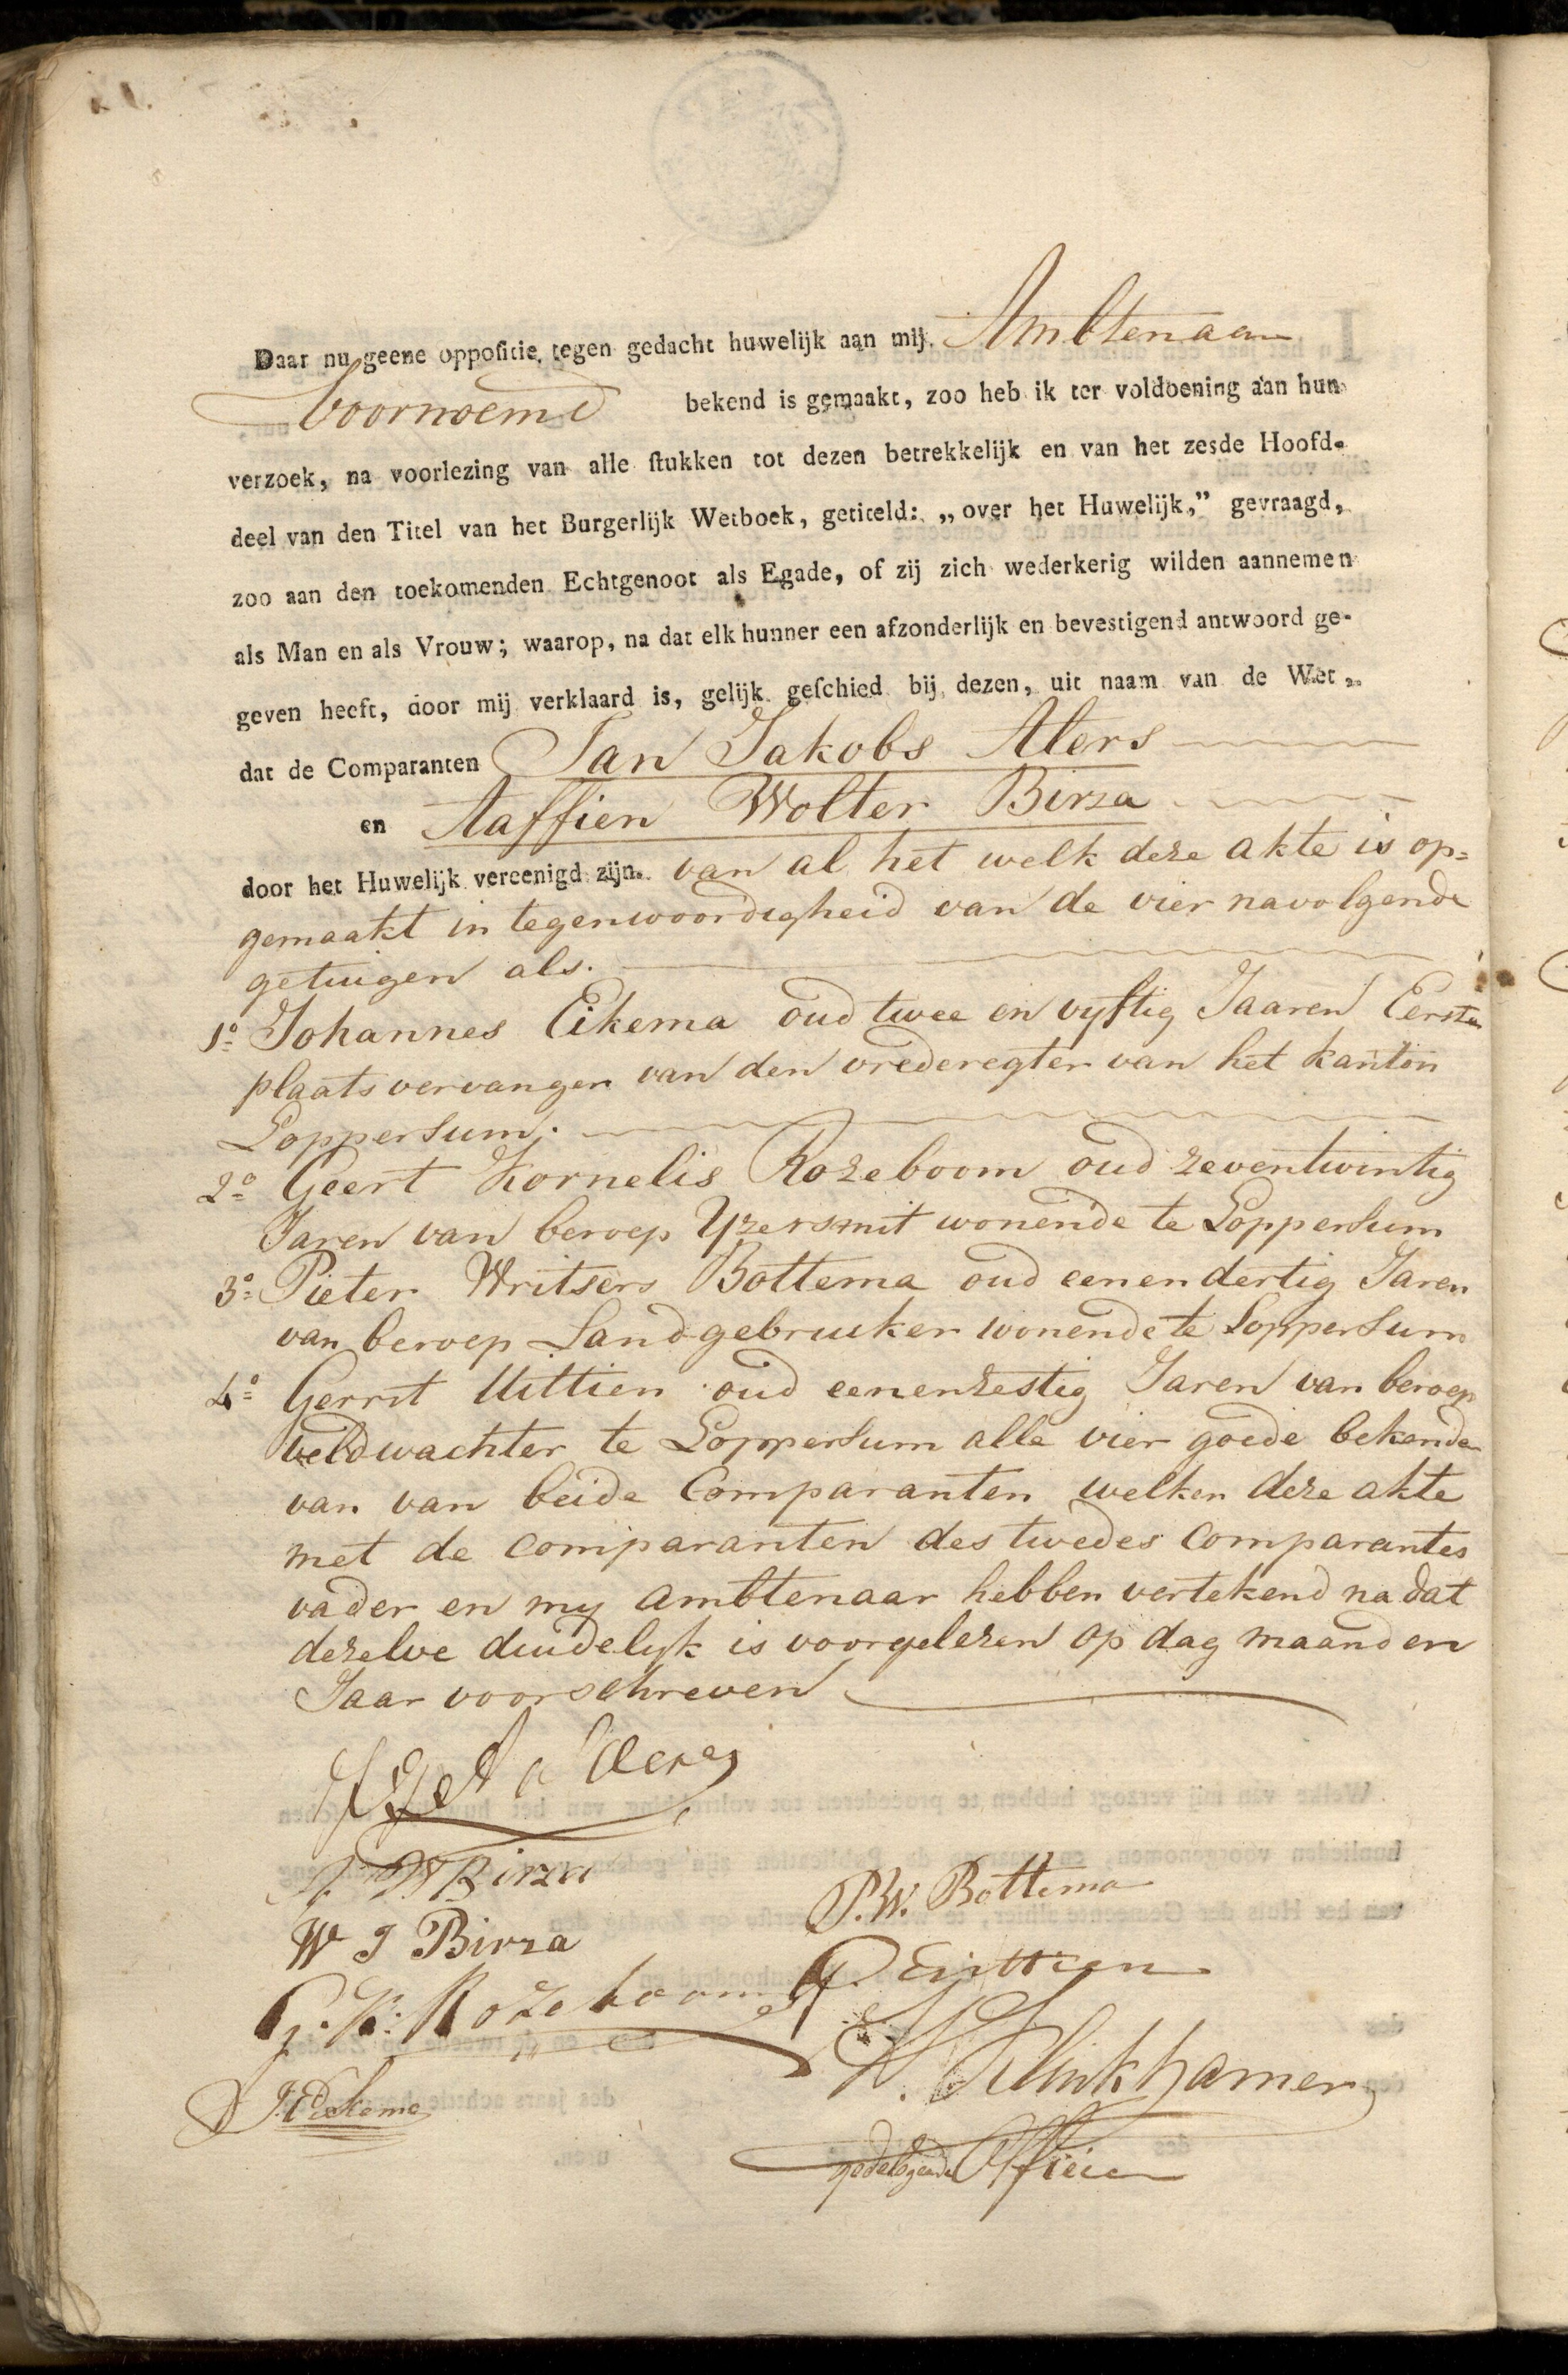 Daar nu geene oppoſitie, tegen gedacht huwelijk aan mij. Ambtenaar
voornoemd bekend is gemaakt, zoo heb ik ter voldoening aan hun
verzoek, na voorlezing van alle ſtukken tot dezen betrekkelijk en van het zesde Hoofd-
deel van den Titel van het Burgerlijk Wetboek, getiteld: „over het Huwelijk,” gevraagd,
zoo aan den toekomenden Echtgenoot als Egade, of zij zich wederkerig wilden aannemen
als Man en als Vrouw; waarop, na dat elk hunner een afzonderlijk en bevestigend antwoord ge-
geven heeft, door mij verklaard is, gelijk geſchied bij dezen, uit naam van de Wet,
dat de Comparanten Jan Jakobs Aters
en Aaffien Wolter Birza
door het Huwelijk vereenigd zijn. van al het welk deze akte is op=
gemaakt in tegenwoordigheid van de vier navolgende
getuigen als.
1o Johannes Eikema oud twee en vyftig Jaaren Eerste
plaatsvervanger van den vrederegter van het kanton
Loppersum.
2o Geert Kornelis Rozeboom oud zeventwintig
Jaren van beroep Yzersmit wonende te Loppersum
3o Pieter Writsers Bottema oud eenendertig Jaren
van beroep Landgebruiker wonende te Loppersum
4o Gerrit Uittien oud eenenzestig Jaren van beroep
veldwachter te Loppersum alle vier goede bekende
van van beide Comparanten welken deze akte
met de comparanten des twedes comparantes
vader en my ambtenaar hebben vertekend na dat
dezelve duidelyk is voorgelezen op dag maand en
Jaar voorschreven
A W Birza
W J Birza
P. W. Bottema
G. K. Rozeboom
G. Euittien
J. Eikema
Klinkhamer
gedelegeerde Officier